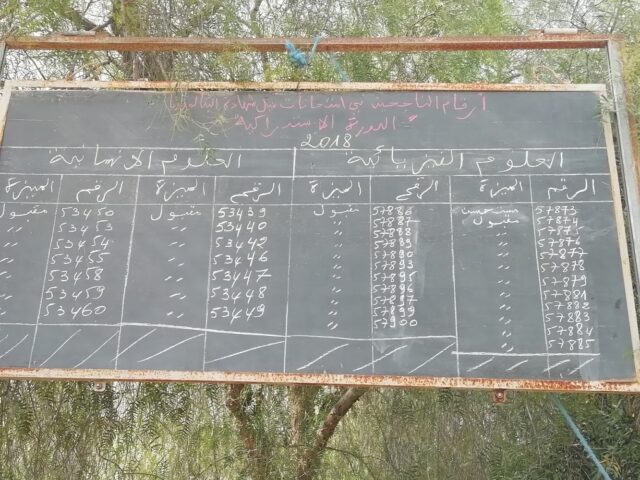 أرقام الناجحين في امتحانات نيل شهادة البكالوريا
الدورة الاستدراكية
2018
العلوم الفيزيائية
العلوم الإنسانية
الرقم الميزة الرقم الميزة الرقم الميزة الرقم الميزة
57873 مستحسن
57874 مقبول
57875 "
57876 "
57877 "
57878 "
57879 "
57881 "
57882 "
57883 "
57884 "
57885 "
57886 مقبول
57887 "
57888 "
57889 "
57890 "
57893 "
57895 "
57896 "
57897 "
57899 "
57900 "
53439 مقبول
53440 "
53442 "
53446 "
53447 "
53448 "
53449 "
53450 مقبول
53453 "
53454 "
53455 "
53458 "
53459 "
53460 "